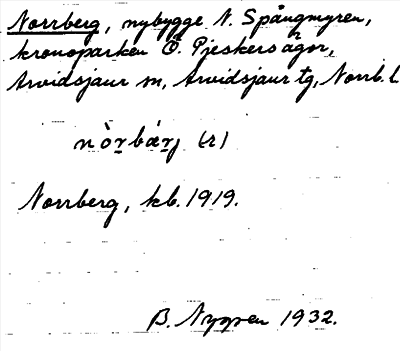 Norrberg, nybygge N. Spångmyren,
kronoparken Ö. Pjeskersågor,
Arvidsjaur sn, Arvidsjaur tg, Norrb. l
nòr̲bár̲j (r)
Norrberg, kb. 1919.
B. Nygren 1932.